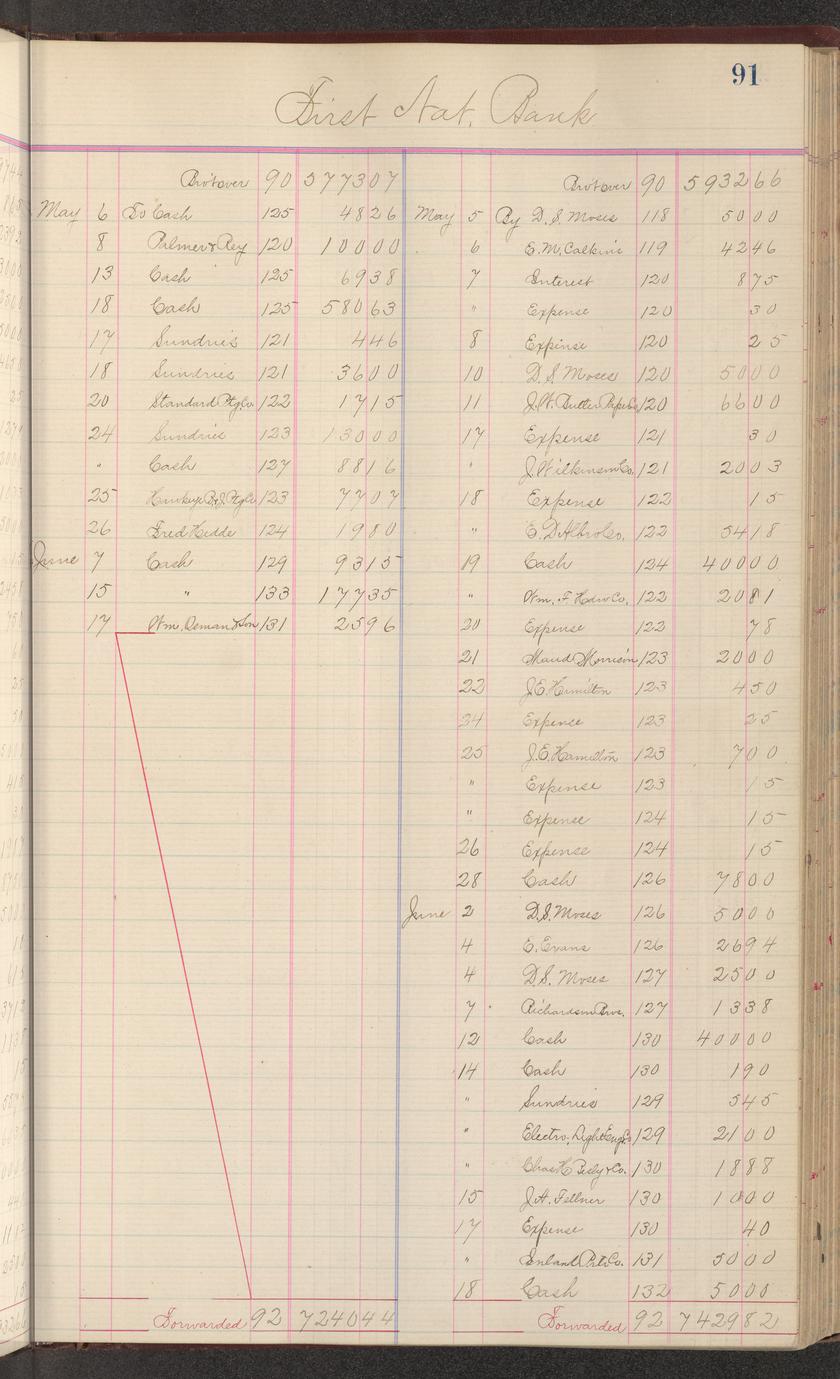 91
First Nat. Bank
Brot over 90 577307
May 6 To Cash 125 4826
8 Palmer & Rey 120 10000
13 Cash 125 6938
18 Cash 125 58063
17 Sundries 121 446
18 Sundries 121 3600
20 Standard Ptg Co. 122 1715
24 Sundries 123 13000
" Cash 127 8816
25 123 7707
26 Fred Hedde 124 1980
June 7 Cash 129 9315
15 " 133 17735
17 Wm. Deman & Son 131 2596
Forwarded 92 724044
Brot over 90 593266
May 5 By D. S. Moses 118 5000
6 E. M. Calkins 119 4246
7 Interest 120 875
" Expense 120 30
8 Expense 120 25
10 D. S. Moses 120 5000
11 J. W. Butler Paper Co 120 6600
17 Expense 121 30
" J. Wilkinson Co. 121 2003
18 Expense 122 15
" E. D. Albro Co. 122 5418
19 Cash 124 40000
" Wm. F. Hdw Co. 122 2081
20 Expense 122 78
21 Maud Morrison 123 2000
22 J. E. Hamilton 123 450
24 Expense 123 25
25 J. E. Hamilton 123 700
" Expense 123 15
" Expense 124 15
26 Expense 124 15
28 Cash 126 7800
June 2 D. S. Moses 126 5000
4 E. Evans 126 2694
4 D. S. Moses 127 2500
7 Richardson Bros. 127 1338
12 Cash 130 40000
14 Cash 130 190
" Sundries 129 545
" Electro. Light Eng. Co 129 2100
" Chas H Besly & Co. 130 1888
15 J. H. Fellner 130 1000
17 Expense 130 40
" Inland Ptr. Co. 131 5000
18 Cash 132 5000
Forwarded 92 742982